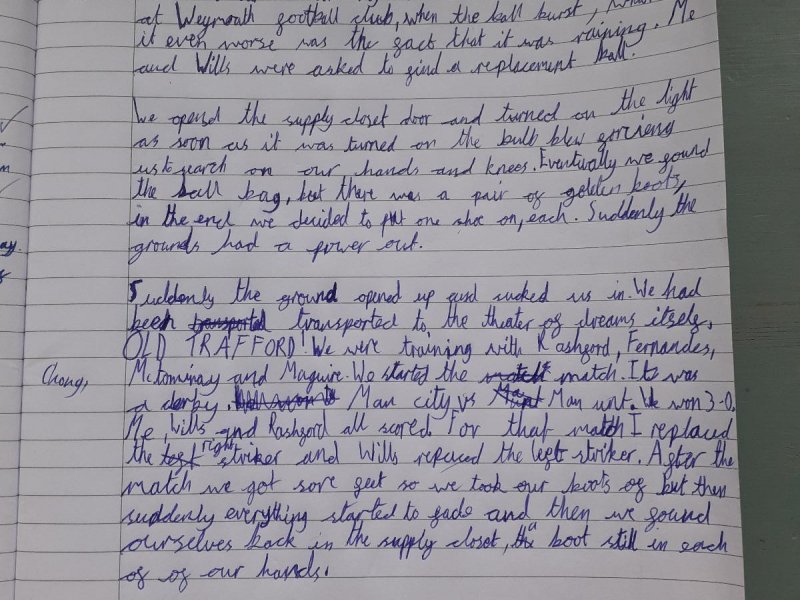 at Weymouth football club, when the ball burst,
it even worse was the fact that it was raining. Me
and Wills were asked to find a replacement ball.
We opened the supply closet door and turned on the light
as soon as it was turned on the bulb blew forcieng
us to search on our hands and knees. Eventually we found
the ball bag, but there was a pair of golden boots,
in the end we decided to put one shoe on, each. Suddenly the
grounds had a power out.
Suddenly the ground opened up and sucked us in. We had
been transported transported to the theater of dreams itself,
OLD TRAFFORD! We were training with Rashford, Fernandes,
Chong, Mctominay and Maguire. We started the match match. Its was
a derby. Man city vs Man unt. We won 3-0.
Me, Wills and Rashford all scored. For that match I replaced
the right striker and Wills repaced the left striker. After the
match we got sore feet so we took our boots of but then
suddenly everything started to fade and then we found
ourselves back in the supply closet, a boot still in each
of of our hands.